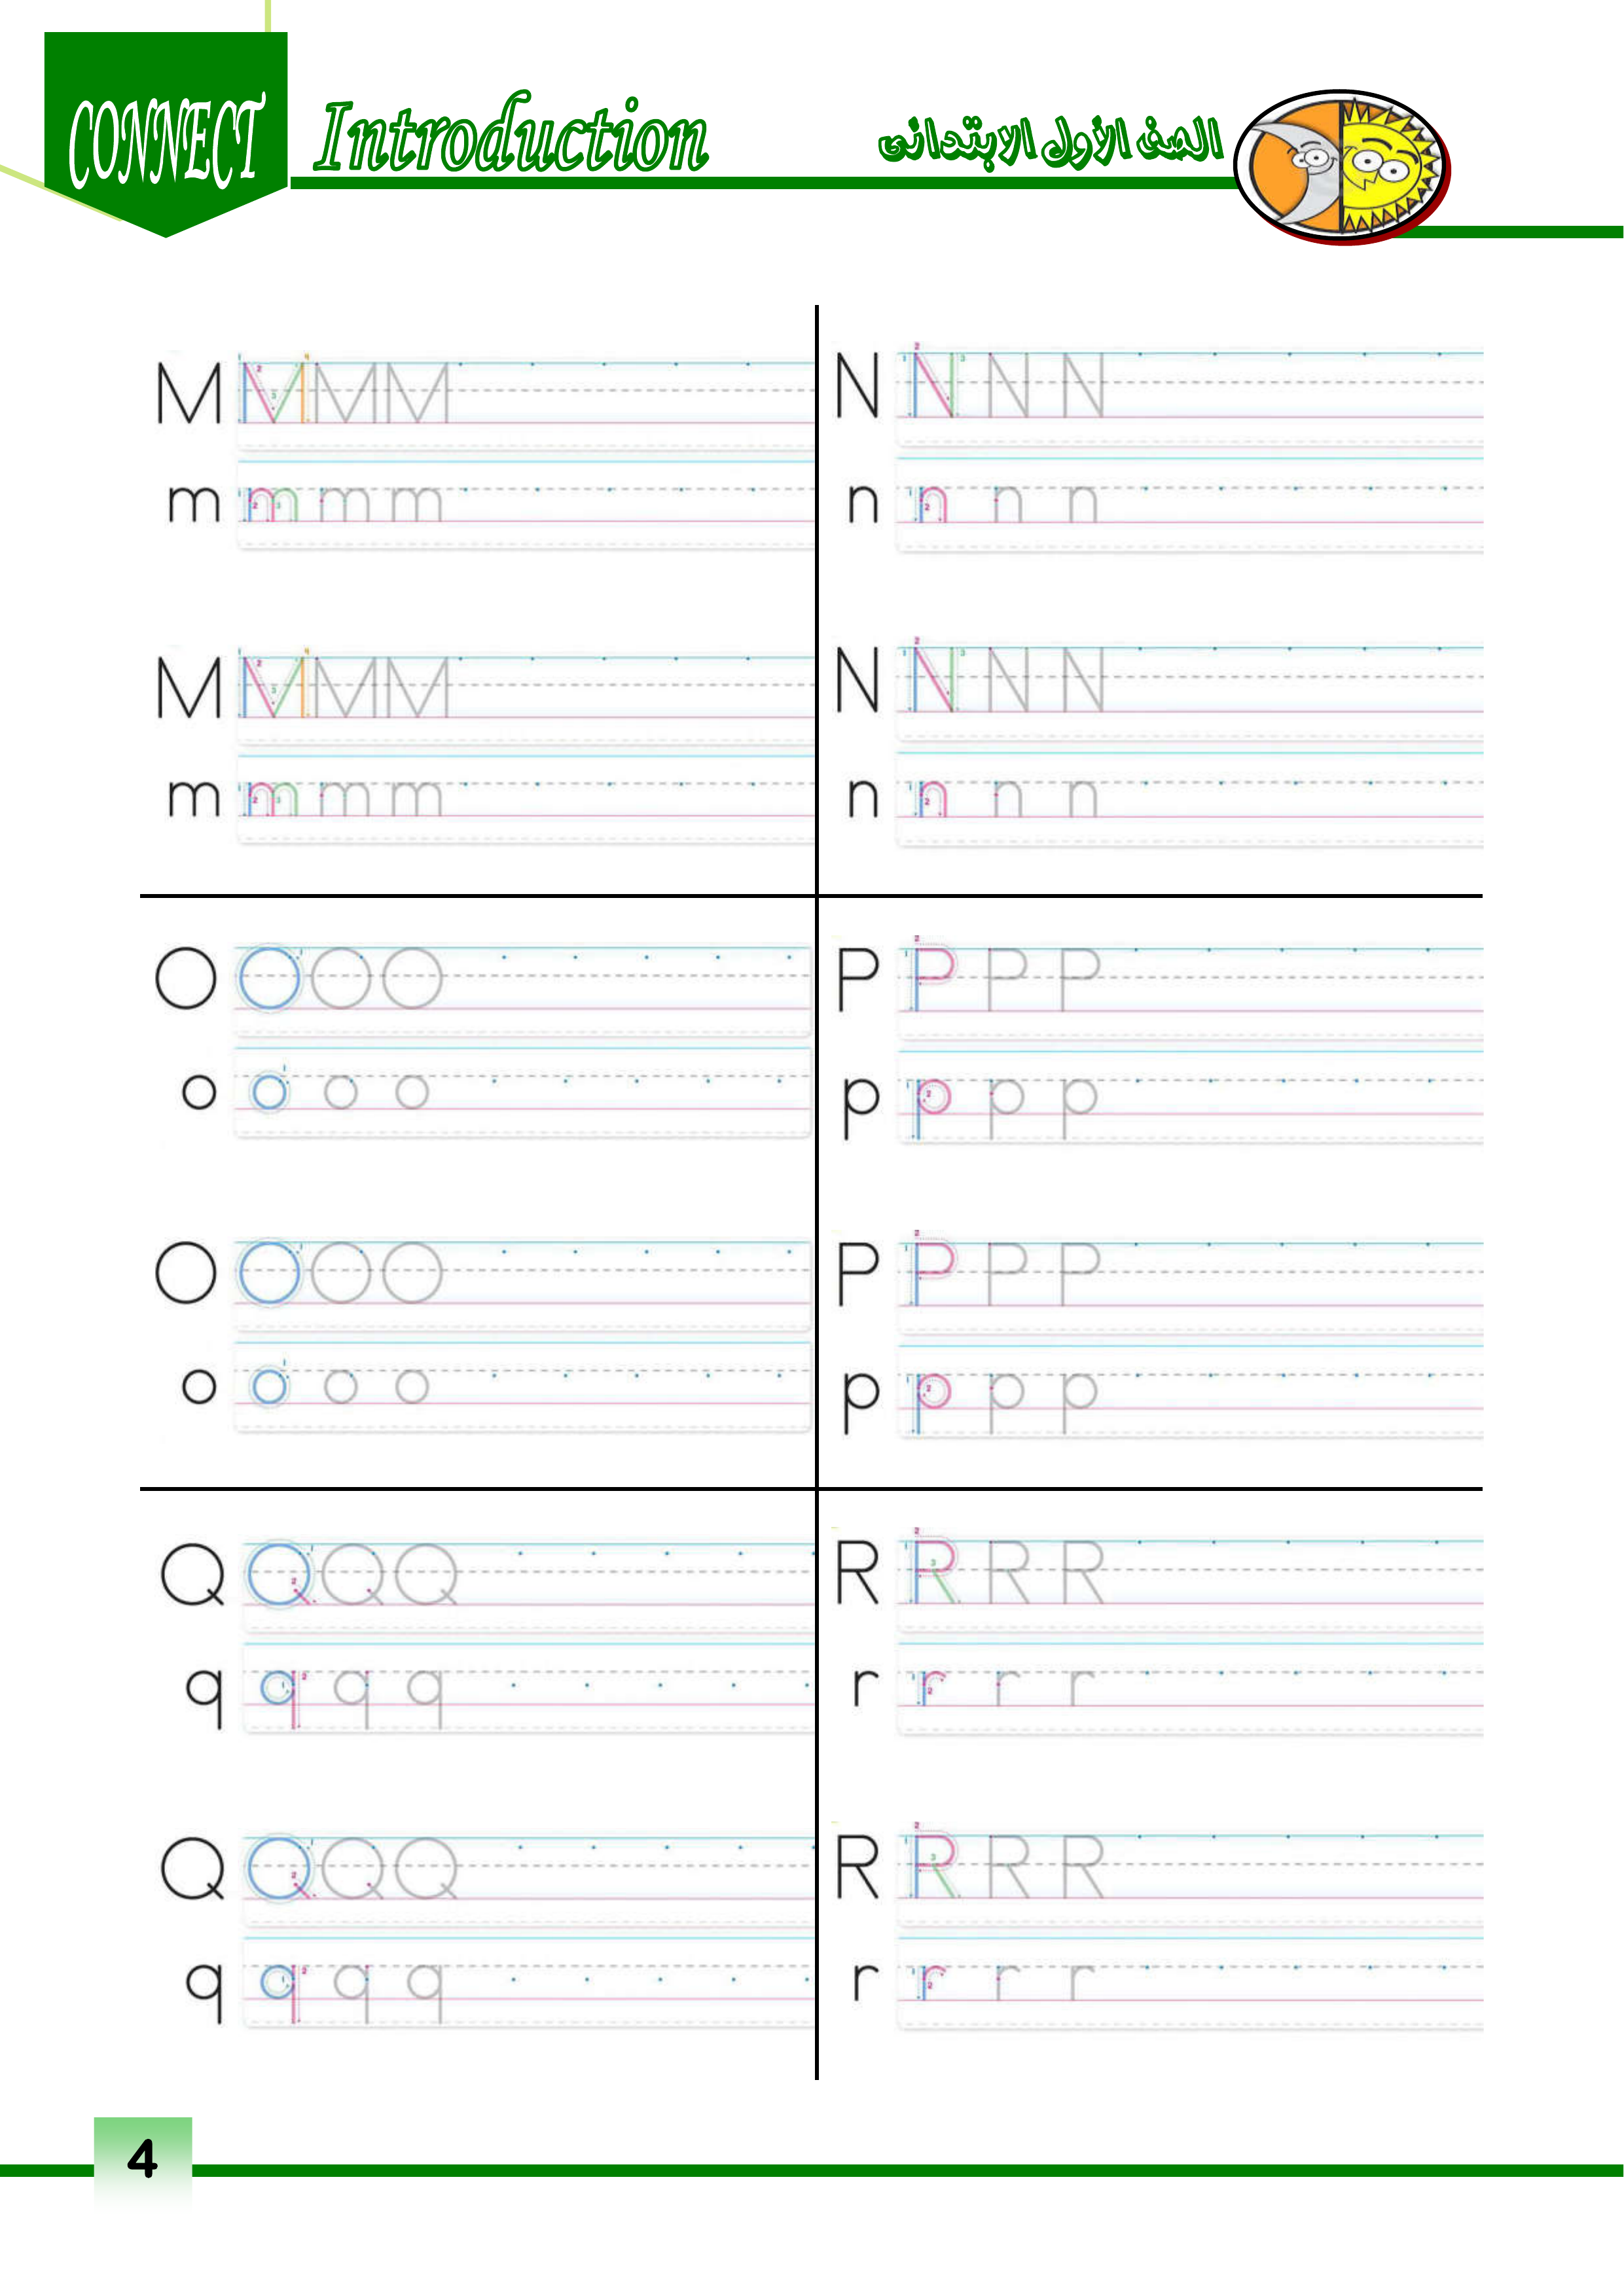 CONNECT Introduction الصف الأول الابتدائى
M M M M
m m m m
M M M M
m m m m
N N N N
n n n n
N N N N
n n n n
O O O O
o o o o
O O O O
o o o o
P P P P
p p p p
P P P P
p p p p
Q Q Q Q
q q q q
Q Q Q Q
q q q q
R R R R
r r r r
R R R R
r r r r
4